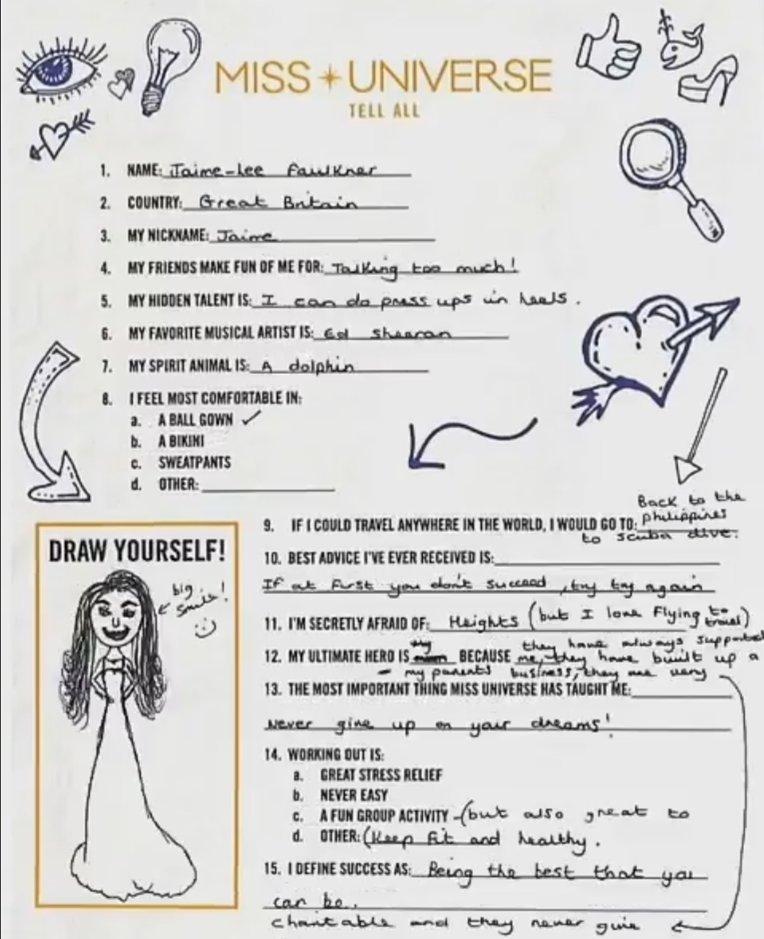 MISS UNIVERSE
TELL ALL
1. NAME: Jaime-Lee Faulkner
2. COUNTRY: Great Britain
3. MY NICKNAME: Jaime
4. MY FRIENDS MAKE FUN OF ME FOR: Talking too much!
5. MY HIDDEN TALENT IS: I can do press ups in heels.
6. MY FAVORITE MUSICAL ARTIST IS: Ed Sheeran
7. MY SPIRIT ANIMAL IS: A dolphin
8. I FEEL MOST COMFORTABLE IN:
a. A BALL GOWN ✓
b. A BIKINI
c. SWEATPANTS
d. OTHER:
Back to the
9. IF I COULD TRAVEL ANYWHERE IN THE WORLD, I WOULD GO TO: philippines
to scuba dive.
10. BEST ADVICE I'VE EVER RECEIVED IS:
If at first you don't succeed, try try again
11. I'M SECRETLY AFRAID OF: Heights (but I love flying to travel)
they have always supported
12. MY ULTIMATE HERO IS my BECAUSE me, they have built up a
- my parents business, they are very
13. THE MOST IMPORTANT THING MISS UNIVERSE HAS TAUGHT ME:
Never give up on your dreams!
14. WORKING OUT IS:
a. GREAT STRESS RELIEF
b. NEVER EASY
c. A FUN GROUP ACTIVITY - (but also great to
d. OTHER: (Keep fit and healthy.
15. I DEFINE SUCCESS AS: Being the best that you
can be.
charitable and they never give
DRAW YOURSELF!
big
smile!